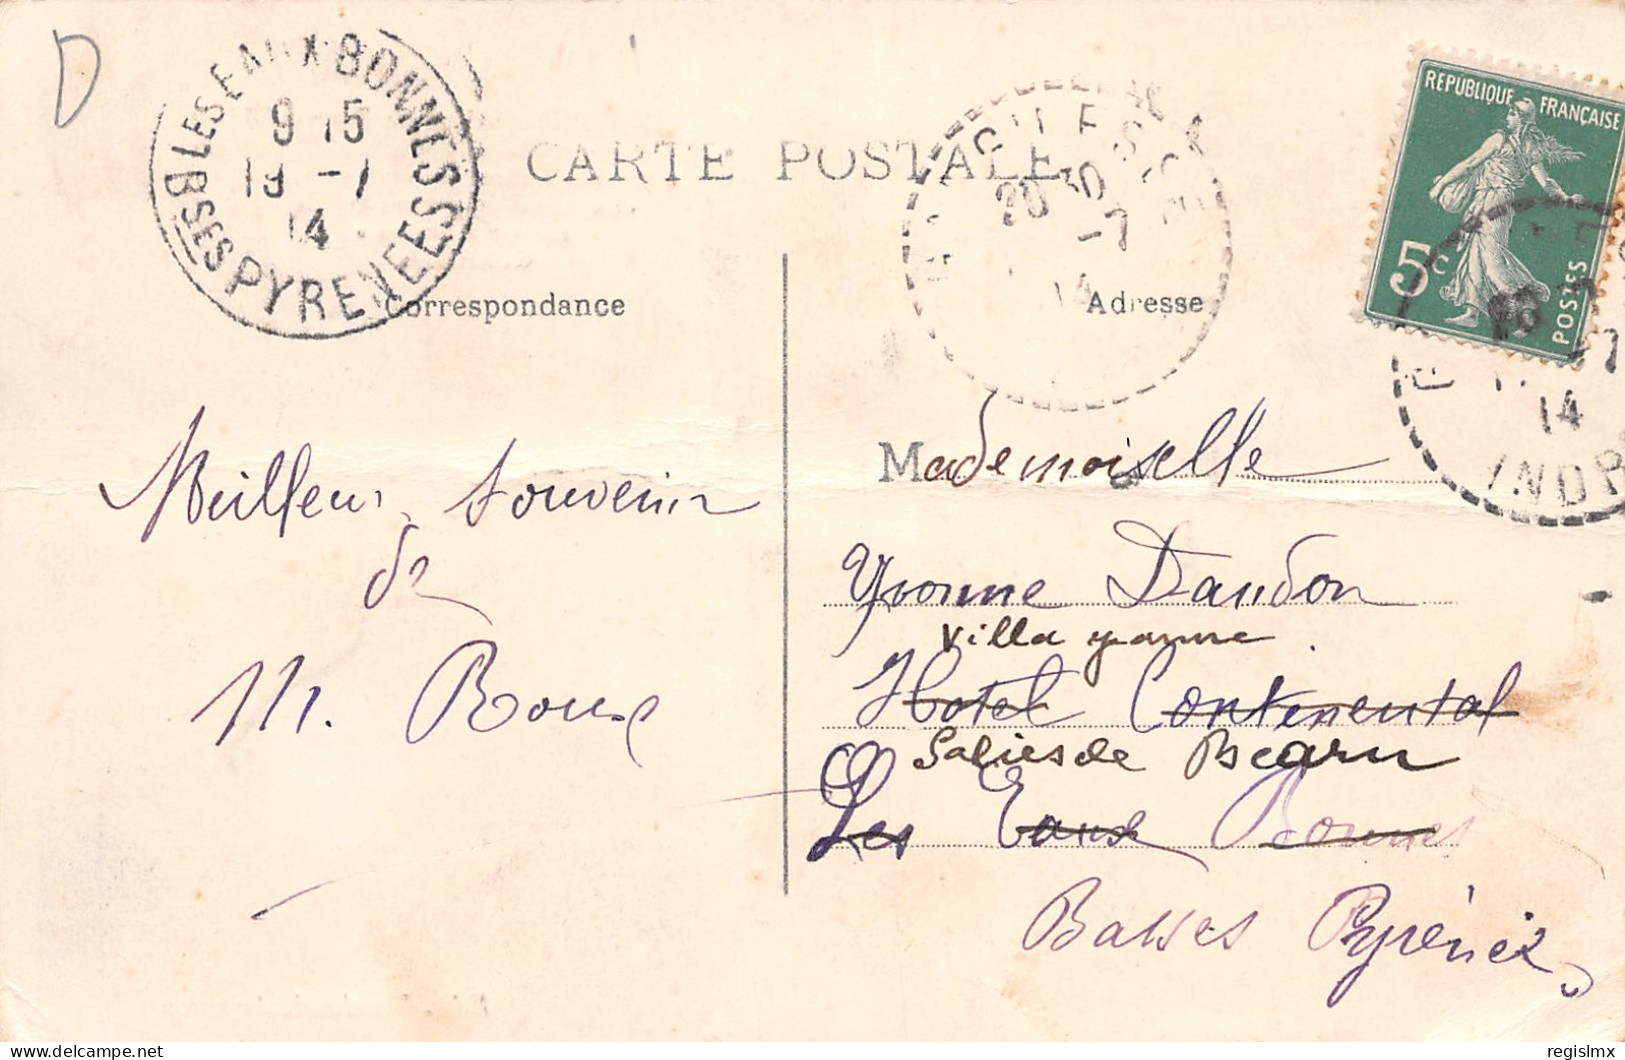 D
LES EAUX BONNES
9 15
19 -7
14
BSES PYRENEES
CARTE POSTALE
20 30
-7
14
REPUBLIQUE FRANÇAISE
5c
POSTES
14
INDR
Correspondance
Adresse
Meilleur souvenir
de
M. Roux
Mademoiselle
Yvonne Daudon
Villa
Hotel Continental
Salies de Bearn
Les Eaux Bonnes
Basses Pyrénées
delcampe.net
regislmx